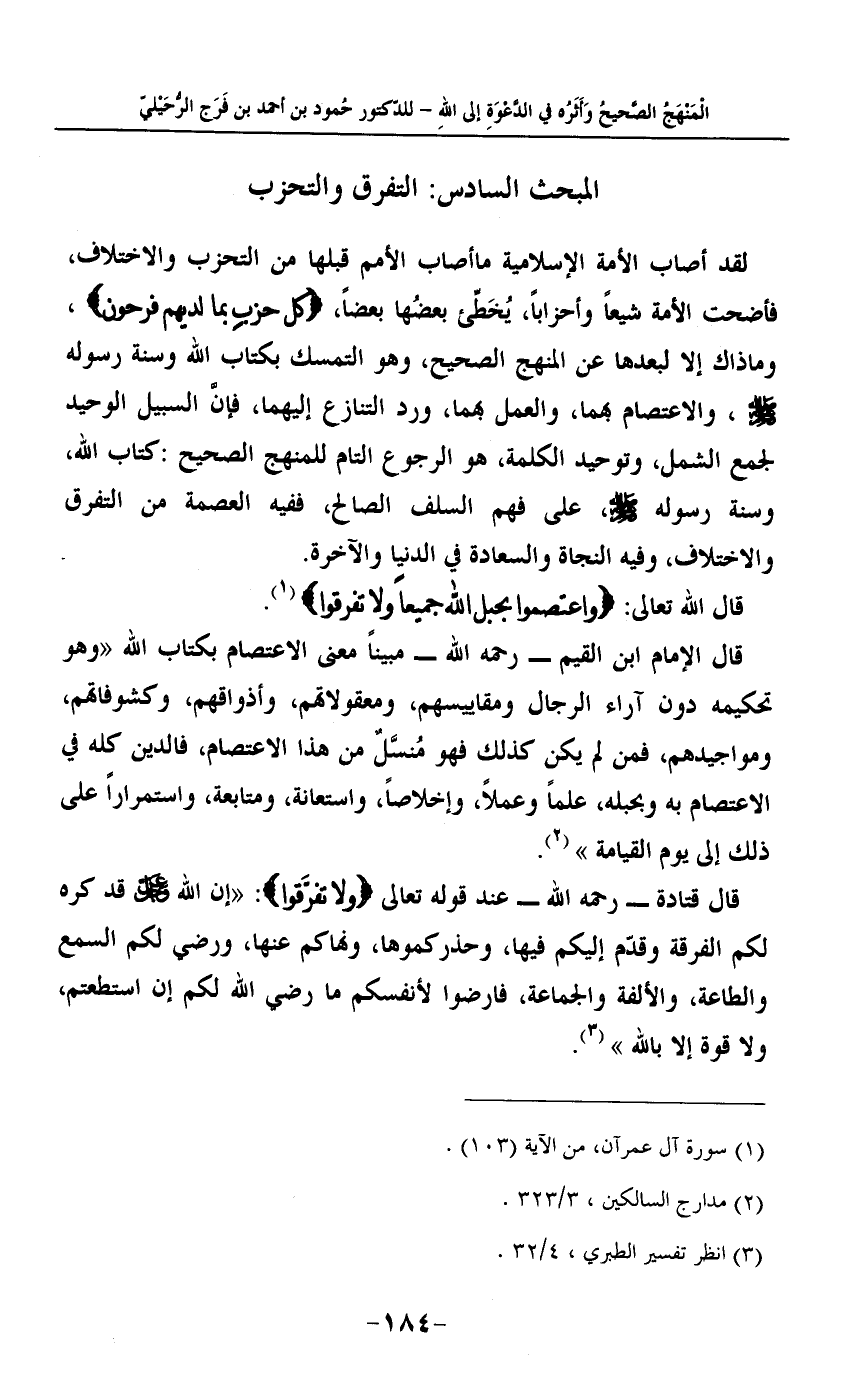 الْمَنْهَجُ الصَّحِيحُ وَأَثَرُه في الدَّعْوَةِ إلى اللهِ – للدّكتور حُمود بن أحمد بن فَرَج الرُّحَيْليّ
المبحث السادس: التفرق والتحزب
لقد أصاب الأمة الإسلامية ماأصاب الأمم قبلها من التحزب والاختلاف،
فأضحت الأمة شيعاً وأحزاباً، يُخَطِّئ بعضُها بعضاً، ﴿كل حزبٍ بما لديهم فرحون﴾ ،
وماذاك إلا لبعدها عن المنهج الصحيح، وهو التمسك بكتاب الله وسنة رسوله
ﷺ ، والاعتصام بهما، والعمل بهما، ورد التنازع إليهما، فإنَّ السبيل الوحيد
لجمع الشمل، وتوحيد الكلمة، هو الرجوع التام للمنهج الصحيح :كتاب الله،
وسنة رسوله ﷺ، على فهم السلف الصالح، ففيه العصمة من التفرق
والاختلاف، وفيه النجاة والسعادة في الدنيا والآخرة.
قال الله تعالى: ﴿واعتصموا بحبل الله جميعاً ولا تفرقوا﴾ (١).
قال الإمام ابن القيم ــ رحمه الله ــ مبيناً معنى الاعتصام بكتاب الله «وهو
تحكيمه دون آراء الرجال ومقاييسهم، ومعقولاتهم، وأذواقهم، وكشوفاتهم،
ومواجيدهم، فمن لم يكن كذلك فهو مُنسَّلٌ من هذا الاعتصام، فالدين كله في
الاعتصام به وبحبله، علماً وعملاً، وإخلاصاً، واستعانة، ومتابعة، واستمراراً على
ذلك إلى يوم القيامة » (٢).
قال قتادة ــ رحمه الله ــ عند قوله تعالى ﴿ولا تفرَّقوا﴾: «إن الله ﷻ قد كره
لكم الفرقة وقدّم إليكم فيها، وحذركموها، ونهاكم عنها، ورضي لكم السمع
والطاعة، والألفة والجماعة، فارضوا لأنفسكم ما رضي الله لكم إن استطعتم،
ولا قوة إلا بالله » (٣).
(١) سورة آل عمرآن، من الآية (١٠٣) .
(٢) مدارج السالكين ، ٣٢٣/٣ .
(٣) انظر تفسير الطبري ، ٣٢/٤ .
-١٨٤-